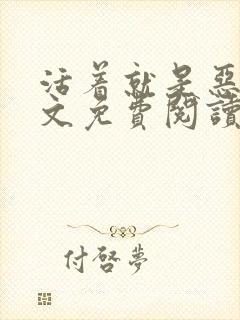 活着就是恶
文免费阅读
付啓夢